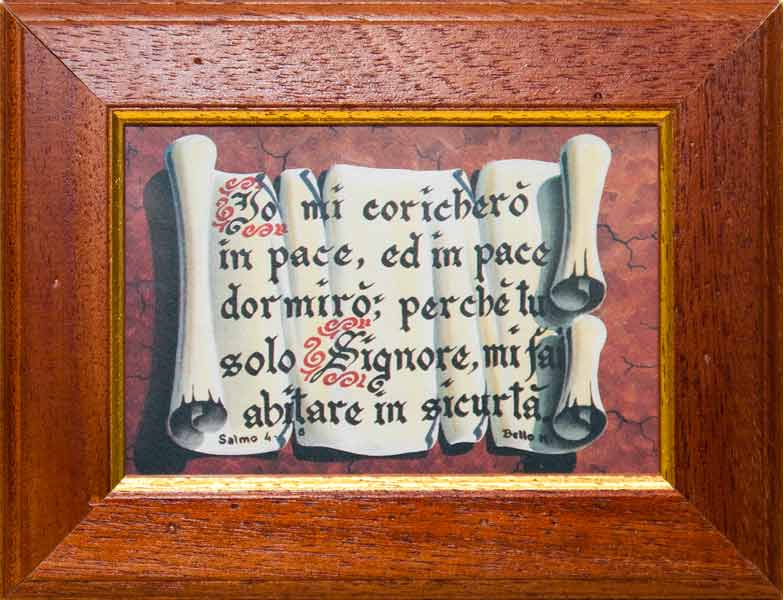 Io mi coricherò
in pace, ed in pace
dormirò; perchè tu
solo Signore, mi fai
abitare in sicurtà.
Salmo 4-8
Bello